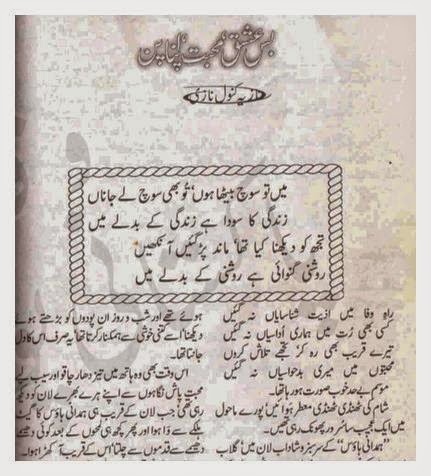 بس عشق، محبت، اپنا پن
نازیہ کنول نازی
میں تو سوچ بیٹھا ہوں، تُو بھی سوچ لے جاناں
زندگی کا سودا ہے زندگی کے بدلے میں
تجھ کو دیکھنا کیا تھا، ماند پڑ گئیں آنکھیں
روشنی گنوائی ہے روشنی کے بدلے میں
راہِ وفا میں اذیت شناسایاں نہ گئیں
کسی بھی رُت میں ہماری اُداسیاں نہ گئیں
تیرے قریب بھی رہ کر تجھے تلاش کروں
محبتوں میں میری بدحواسیاں نہ گئیں
موسم بے حد خوب صورت ہو رہا تھا۔
شام کی ٹھنڈی ٹھنڈی معطر ہوائیں پورے ماحول
میں ایک عجیب سا سرور پھونک رہی تھیں۔
"ہمدانی ہاؤس" کے سرسبز و شاداب لان میں گلاب
ہوئے تھے اور شب و روز ان پودوں کو بڑھتے ہوئے
دیکھنا اسے کتنی خوشی سے ہمکنار کرتا تھا یہ صرف اس کا دل
جانتا تھا۔
اس وقت بھی وہ ہاتھ میں تیز دھار چاقو اور سیب لیے
محبت پاش نگاہوں سے اپنے ہرے بھرے لان کو دیکھ
رہی تھی جب لان کے قریب ہی ہمدانی ہاؤس کا گیٹ
ہلکے سے وا ہوا اور پھر کچھ ہی لمحوں کے بعد کوئی دھیمے
دھیمے سے قدموں سے چلتا اس کے قریب آ کھڑا ہوا۔